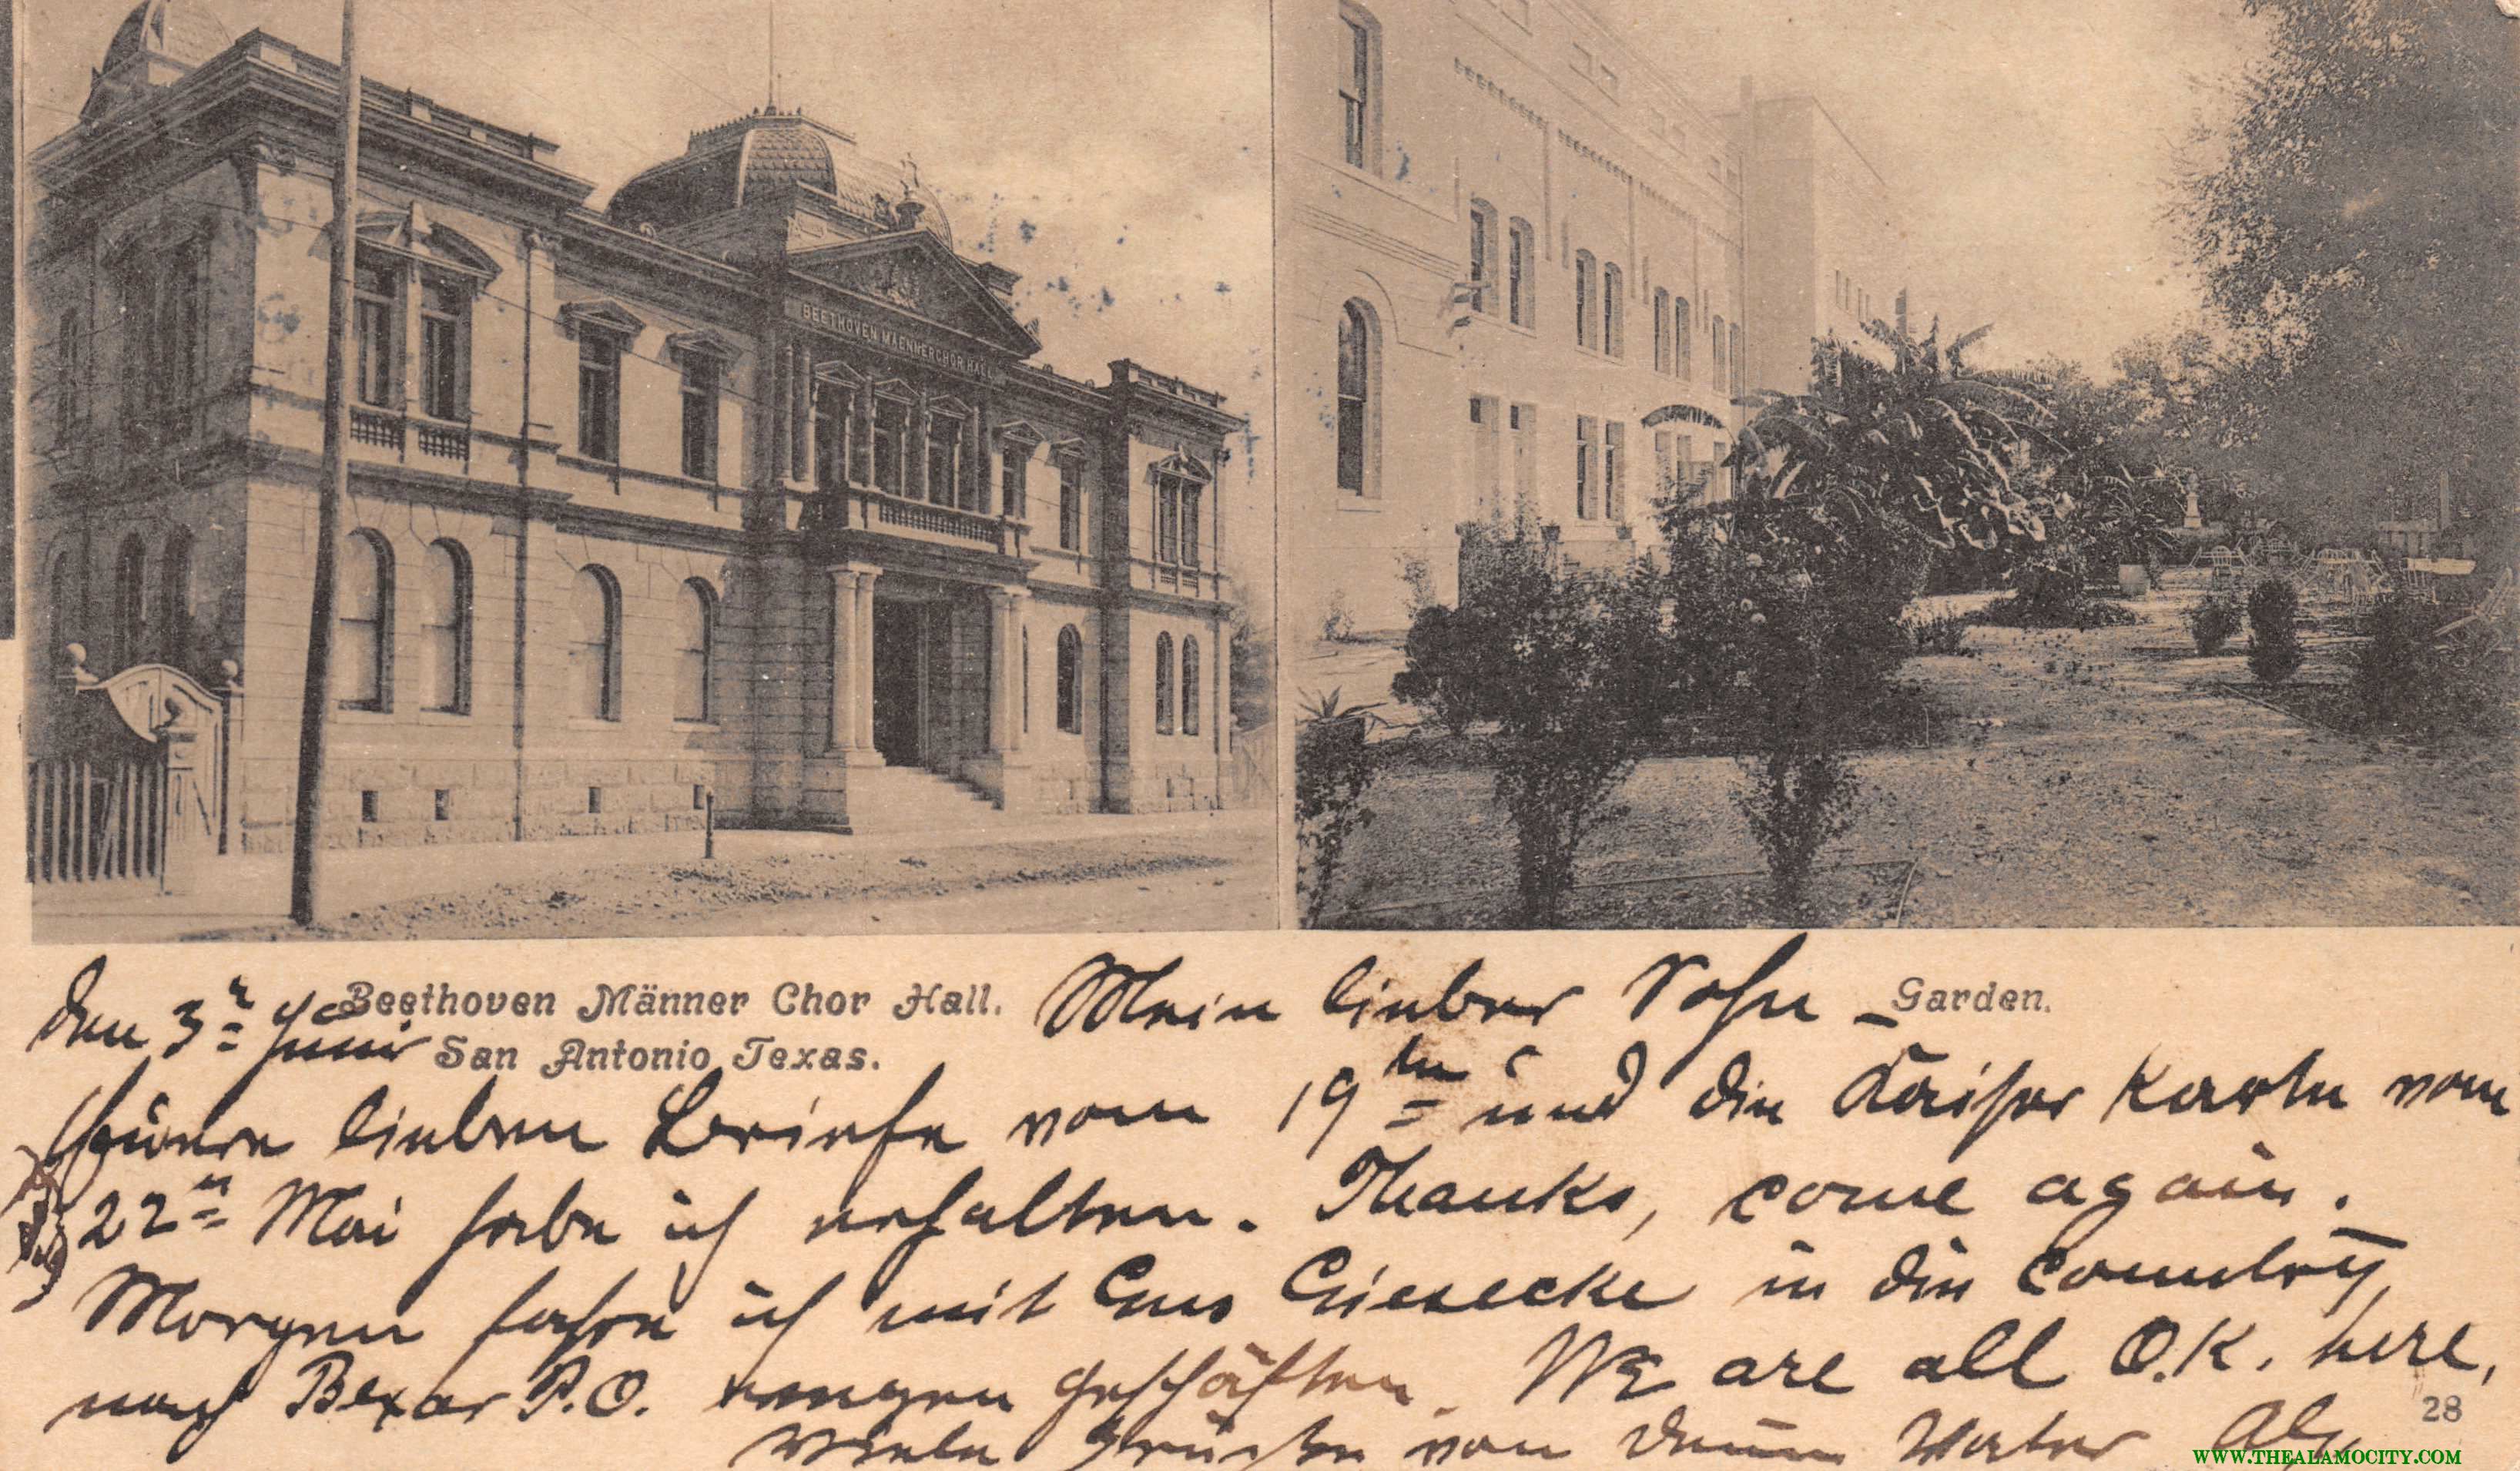 BEETHOVEN MAENNERCHOR HALL
Beethoven Männer Chor Hall.
San Antonio Texas.
Garden.
den 3ᵗ Juni
Mein lieber Sohn –
lieben Briefe vom 19ten und die Kaiser Karte vom
22ten Mai habe ich erhalten. Thanks, come again.
Morgen fahre ich mit Gus Giesecke in die Country,
nach Bexar P.O. wegen Geschäften. We are all O.K. here,
28
Viele Grüße von Deinem Vater
WWW.THEALAMOCITY.COM